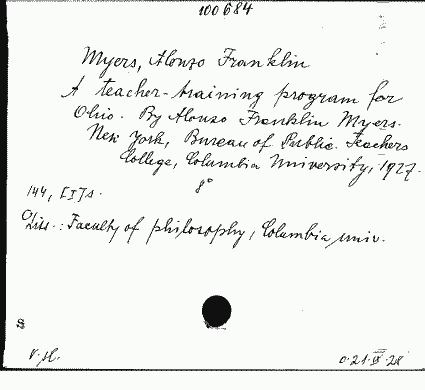 100684
Myers, Alonzo Franklin
A teacher-training program for
Ohio. By Alonzo Franklin Myers.
New York, Bureau of Public. Teachers
College, Columbia University, 1927.
8°
144, [I] s.
Diss.: Faculty of philosophy, Columbia univ.
S